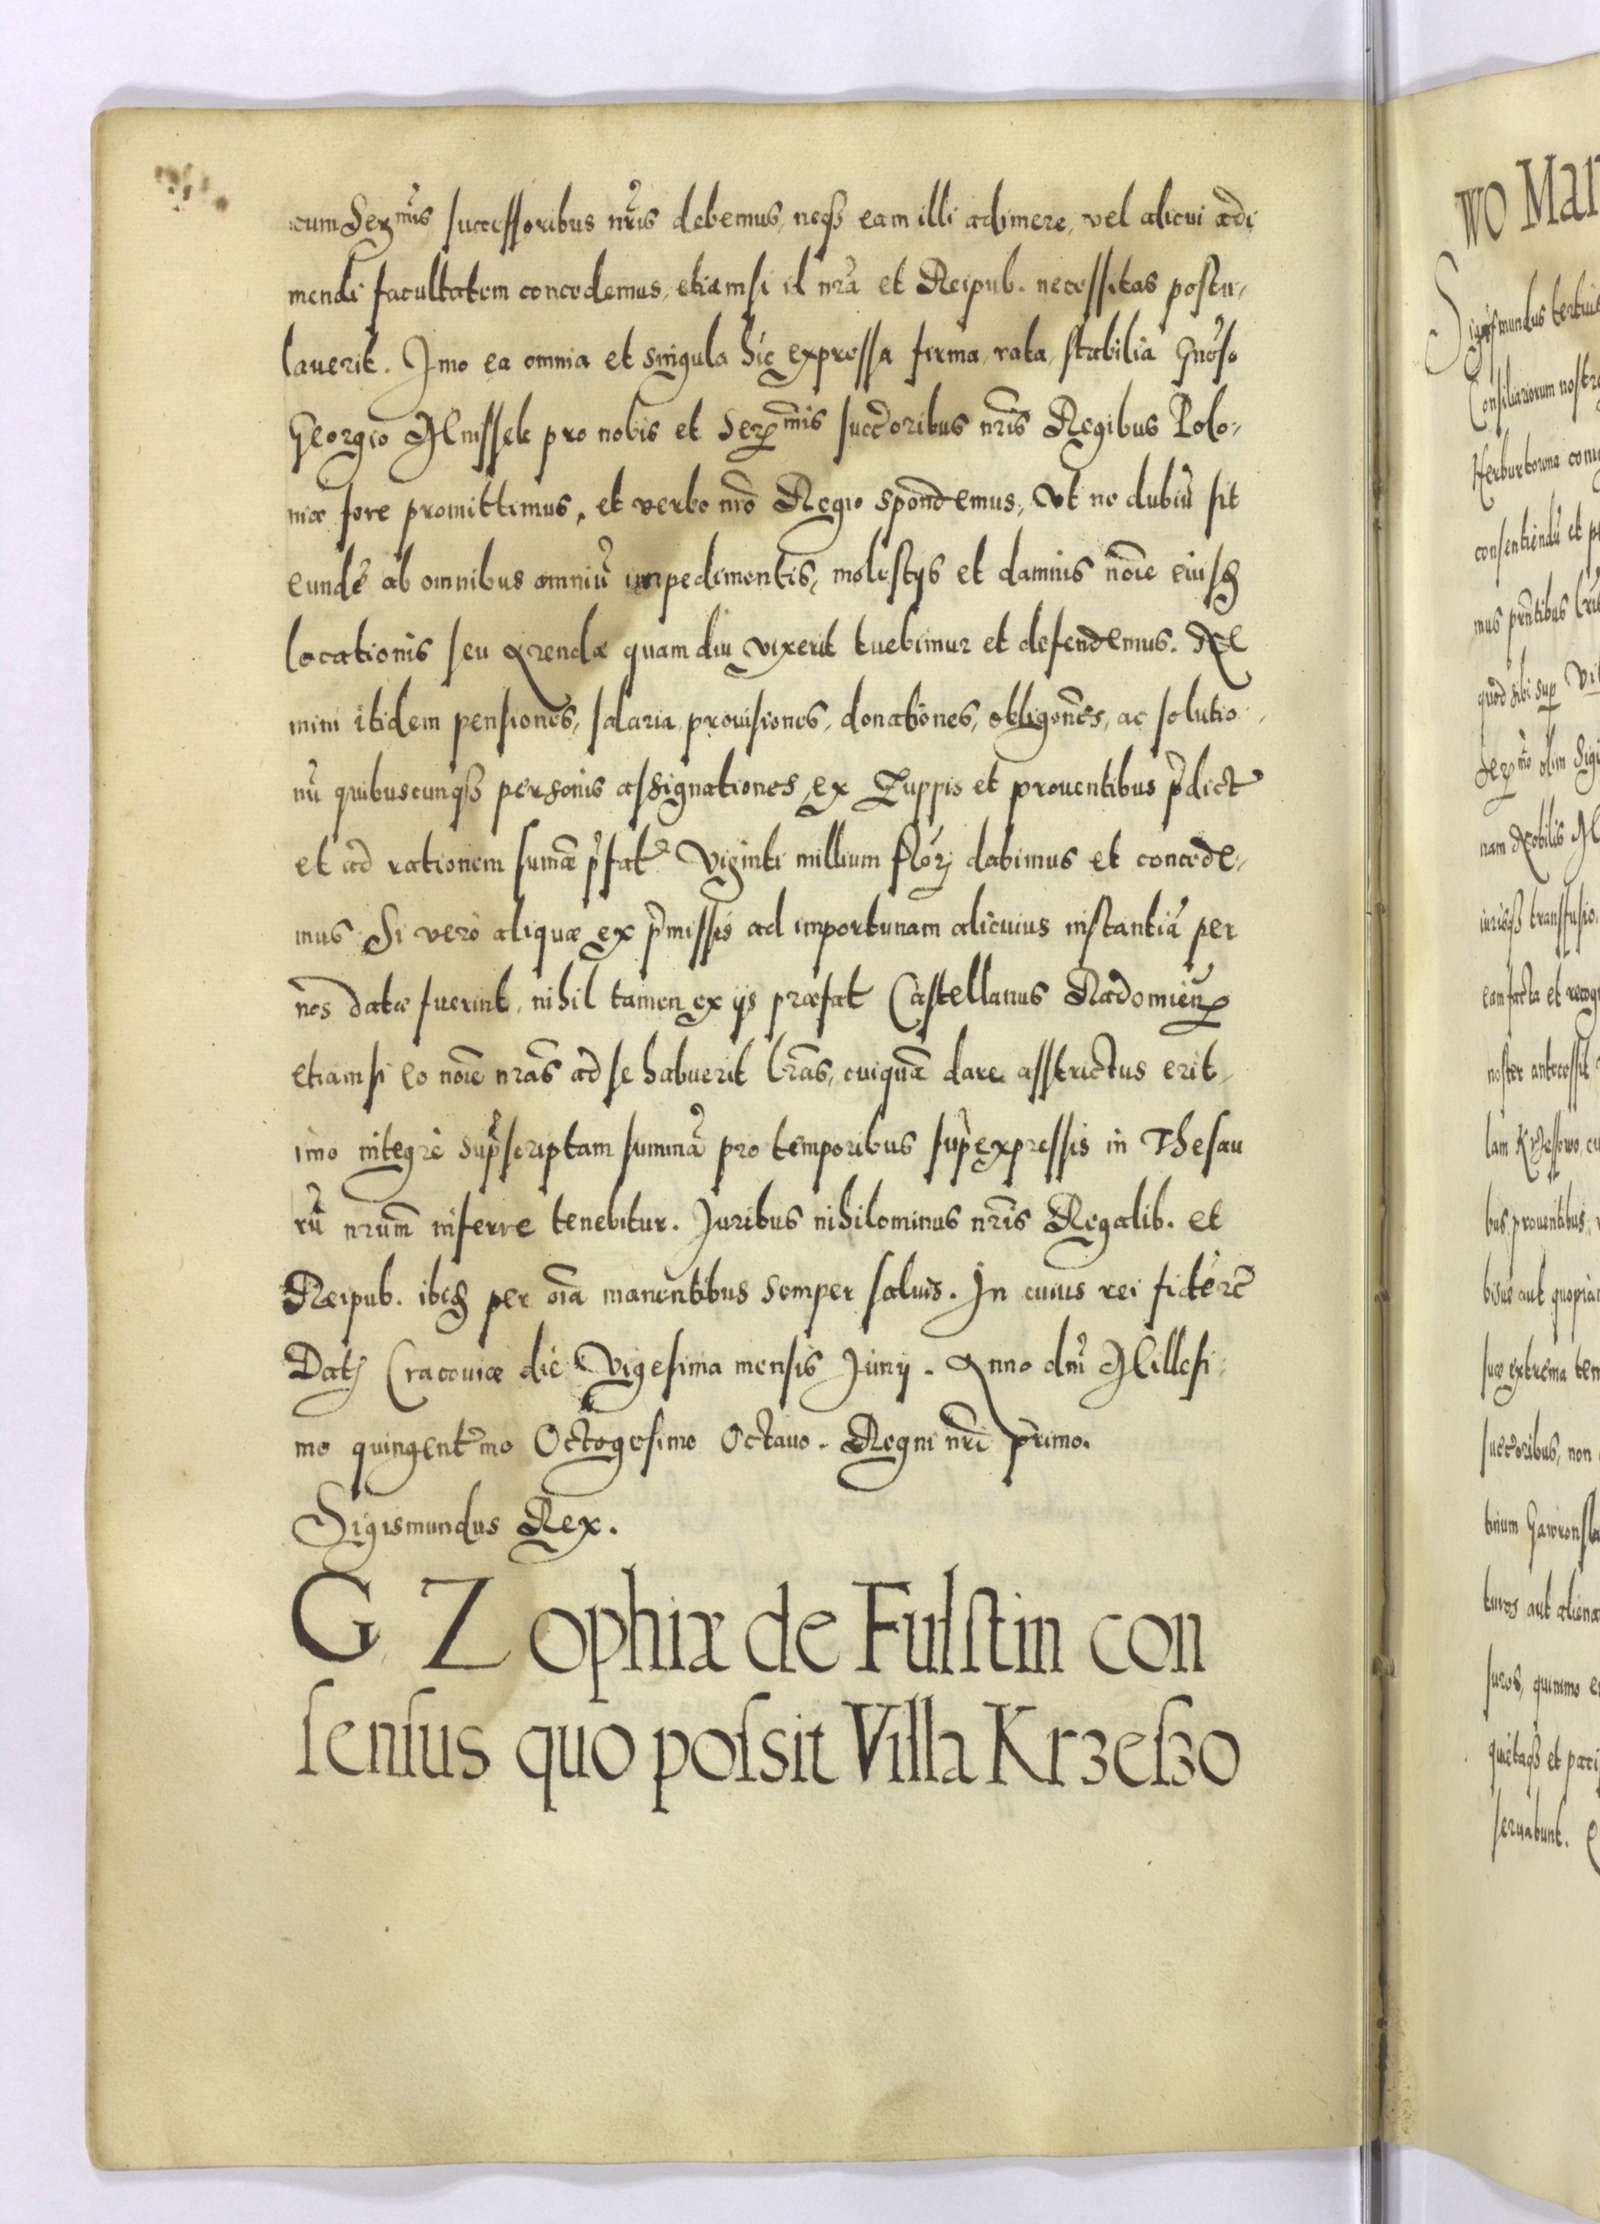 cum Serᵐⁱˢ successoribus nr̃is debemus, neqз eam illi adimere, vel alicui adi
mendi facultatem concedemus, etiamsi id nrã et Reipub. necessitas postu,
lauerit. Imo ea omnia et singula hic expressa firma, rata, stabilia Gnõso
Georgio Mnissek pro nobis et Serᵐⁱˢ succõribus nr̃is Regibus Polo,
niæ fore promittimus, et verbo nrõ Regio spondemus, Vt ne dubiũ sit
eundẽ ab omnibus omniũ impedimentis, molestijs et damnis nõie eiusd
locationis seu Arendæ quam diu vixerit tuebimur et defendemus. Ne
mini itidem pensiones, salaria, prouisiones, donationes, obligoñes, ac solutio
nũ quibuscunqз personis assignationes ex Zuppis et prouentibus p̃dict
et ad rationem sumæ p̃fat Viginti millium flor dabimus et concede,
mus. Si vero aliquæ ex p̃missis ad importunam alicuius instantiã per
nos datæ fuerint, nihil tamen ex ijs præfat Castellanus Radomieñ
etiamsi eo nõie nrãs ad se habuerit lrãs, cuiquã dare asstrictus erit,
imo integrè sup̃scriptam summã pro temporibus sup̃expressis in Thesau
rũ nrum̃ inferre tenebitur. Juribus nihilominus nr̃is Regalib. et
Reipub. ibid per oĩa manentibus semper saluis. In cuius rei fidẽ rc̃
Dat Cracouiæ die Vigesima mensis Junij. Anno dñi Millesi,
mo quingentᵐᵒ Octogesimo Octauo. Regni nr̃i primo.
Sigismundus Rex.
G. Zophiæ de Fulstin con
sensus quo possit Villa Krzeszo
wo Mar
Sigismundus tertius
Consiliariorum nostro
Herburtowna coniu
consentiendũ et p
mus pr̃ntibus lrĩs
quod sibi sup Vil
Serᵐᵒ olim Sigi
nam Nobilis M
iurisqз transfusio
eam facta et recog
noster antecessit
lam Krzessowo, cu
bus, prouentibus,
bisue aut quopiã
suæ extrema tem
succõribus, non
tinum Gawronsk
turos aut aliena
suros, quinimo e
quietaqз et paci
seruabunt.